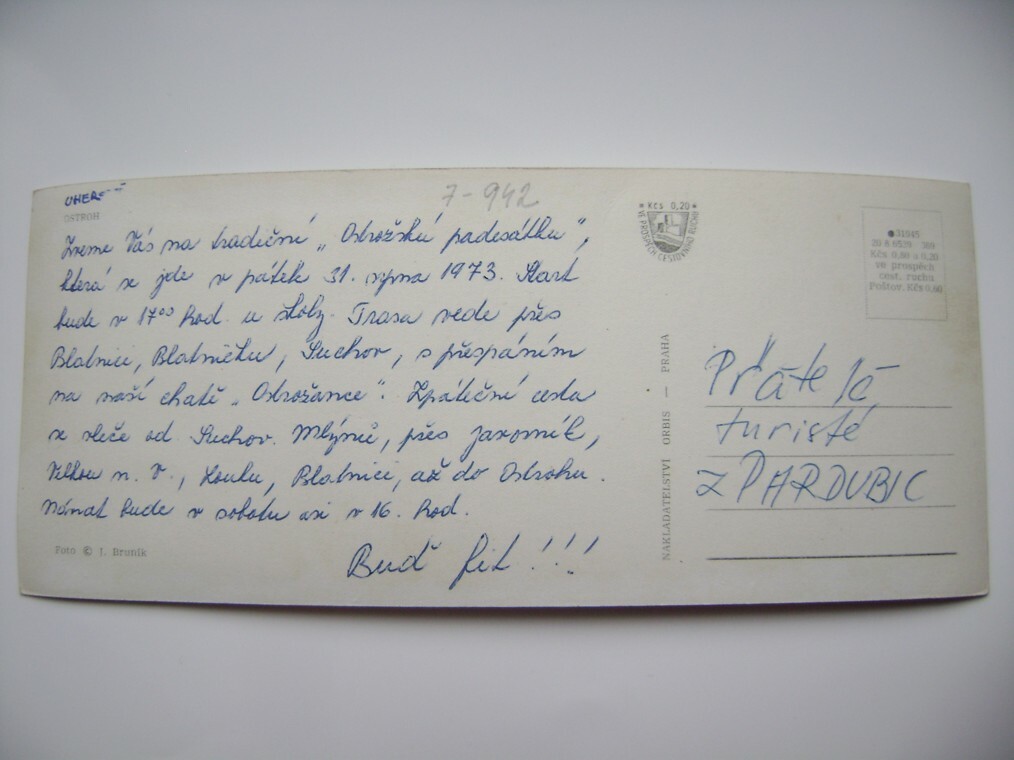 7-942
UHERSKÝ
OSTROH
Zveme Vás na tradiční „Ostrožskou padesátku",
která se jde v pátek 31. srpna 1973. Start
bude v 17⁰⁰ hod. u školy. Trasa vede přes
Blatnici, Blatničku, Suchov, s přespáním
na naší chatě „Ostrožance". Zpáteční cesta
se vleče od Suchov. Mlýnů, přes Javorník,
Velkou n. V., Louku, Blatnici, až do Ostrohu.
Návrat bude v sobotu asi v 16. hod.
Buď fit!!!
Foto © J. Bruník
NAKLADATELSTVÍ ORBIS — PRAHA
* Kčs 0,20 *
VE PROSPĚCH CESTOVNÍHO RUCHU
31845
Kčs 0,80 a 0,20
ve prospěch
cest. ruchu
Poštov. Kčs 0,60
Přátelé
turisté
z PARDUBIC